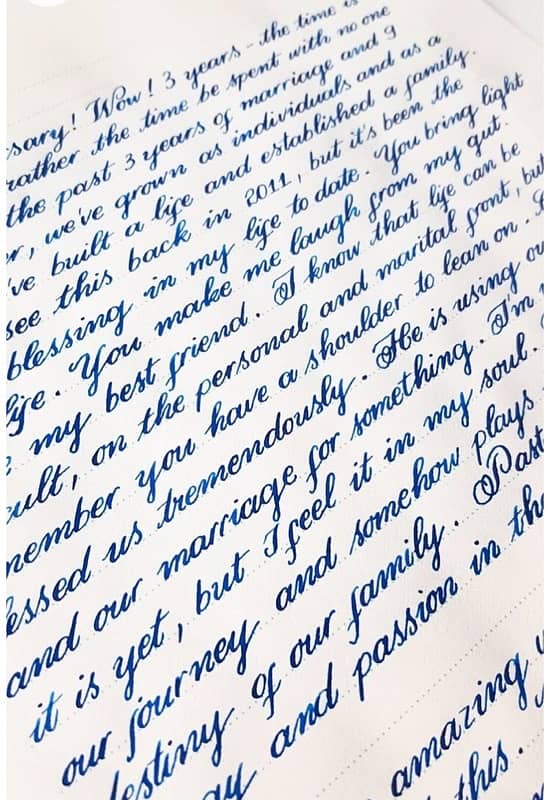 sary! Wow! 3 years - the time is
rather the time be spent with no one
the past 3 years of marriage and I
r, we've grown as individuals and as a
've built a life and established a family.
see this back in 2011, but it's been the
blessing in my life to date. You bring light
life. You make me laugh from my gut.
my best friend. I know that life can be
cult, on the personal and marital front, but
member you have a shoulder to lean on.
essed us tremendously. He is using ou
and our marriage for something. I'm
it is yet, but I feel it in my soul.
our journey and somehow plays
destiny of our family. Past
ay and passion in th
amazing
this.